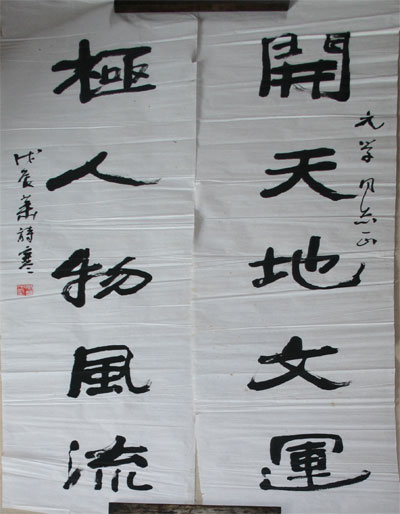 開天地文運
元学同志正
極人物風流
戊辰詩